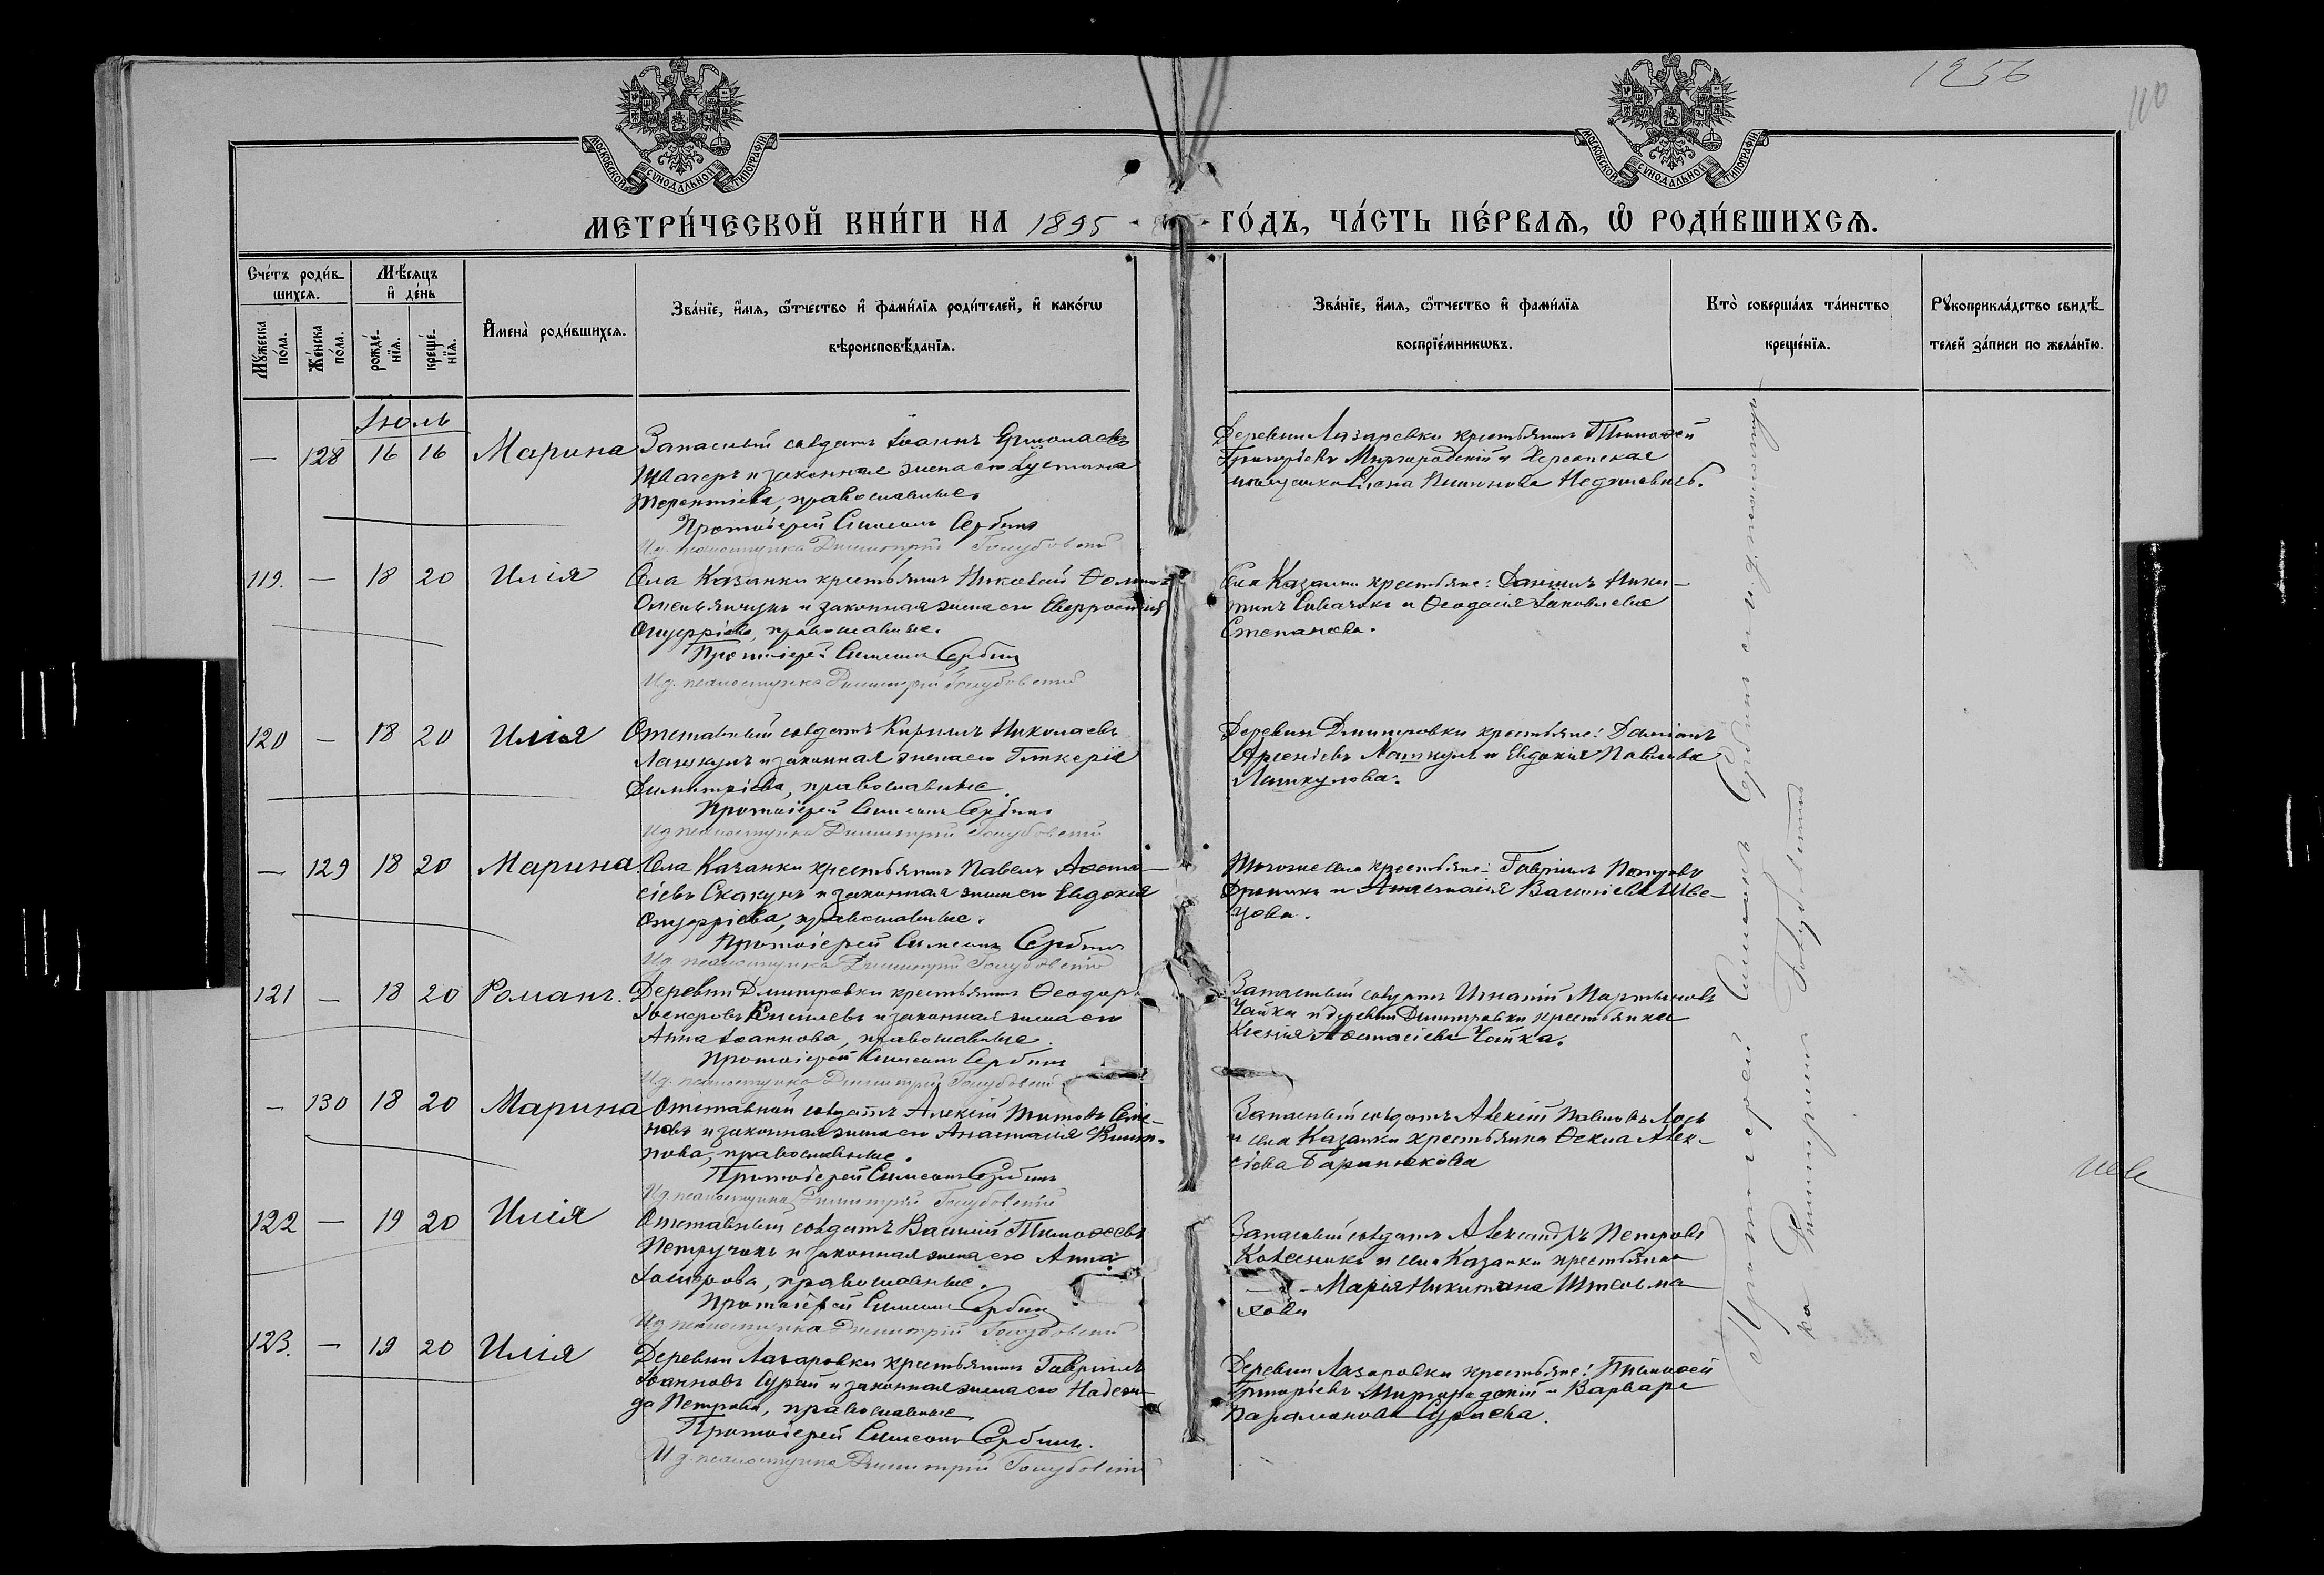 1256
110
МОСКОВСКОЙ СѴНОДАЛЬНОЙ ТИПОГРАФІИ
МОСКОВСКОЙ СѴНОДАЛЬНОЙ ТИПОГРАФІИ
МЕТРИ́ЧЕСКОЙ КНИ́ГИ НА 1895 ГО́ДЪ, ЧА́СТЬ ПЕ́РВАЯ, Ѽ РОДИ́ВШИХСЯ.
Сче́тъ роди́в-
шихся.
Мѣ́сяцъ
и҆ де́нь
Мꙋ́жеска по́ла.
Же́нска по́ла.
рожде́-нїя.
креще́-нїя.
И҆мена̀ роди́вшихся.
Зва́нїе, и҆́мя, ѻ҆́тчество и҆ фами́лїя роди́телей, и҆ како́гѡ
вѣроисповѣ́данїя.
Зва́нїе, и҆́мя, ѻ҆́тчество и҆ фами́лїя
воспрїе́мникѡвъ.
Кто̀ соверша́лъ та́инство
креще́нїя.
Рꙋкоприкла́дство свидѣ́-
телей за́писи по жела́нїю.
Іюль
— 128 16 16 Марина Запасный солдатъ Іоаннъ Ермолаевъ
и законная жена его Іустина
Терентіева, православные.
Протоіерей Симеонъ Сербинъ
И.д. псаломщика Димитрій Голубовскій
Деревни Лазаревки крестьянинъ Тимоѳей
Григорьевъ Миргородскій и Херсонская
мѣщанка Елена
119. — 18 20 Илія Села Казанки крестьянинъ Николай Ѳоминъ
и законная жена его
Онуфріева, православные.
Протоіерей Симеонъ Сербинъ
И.д. псаломщика Димитрій Голубовскій
Села Казанки крестьяне: Даніилъ Ники-
тинъ и Ѳеодосія Іаковлева
Степанова.
120 — 18 20 Илія Отставный солдатъ Кириллъ Николаевъ
Лашкулъ и законная жена его Гликерія
Димитріева, православные.
Протоіерей Симеонъ Сербинъ
И.д. псаломщика Димитрій Голубовскій
Деревни Дмитровки крестьяне: Даміанъ
Арсеніевъ Лашкулъ и Евдокія Павлова
Лашкулова.
— 129 18 20 Марина Села Казанки крестьянинъ Павелъ Аѳана-
сіевъ Скакунъ и законная жена его Евдокія
Онуфріева, православные.
Протоіерей Симеонъ Сербинъ
И.д. псаломщика Димитрій Голубовскій
Того же села крестьяне: Гавріилъ Петровъ
и Анастасія Василіева Шве-
цова.
121 — 18 20 Романъ. Деревни Дмитровки крестьянинъ Ѳеодоръ
Киселевъ и законная жена его
Анна Іоаннова, православные.
Протоіерей Симеонъ Сербинъ
И.д. псаломщика Димитрій Голубовскій
Запасный солдатъ Игнатій Мартиновъ
Чайка и деревни Дмитровки крестьянка
Ксенія Аѳанасіева Чайка.
— 130 18 20 Марина Отставной солдатъ Алексій Титовъ Семе-
новъ и законная жена его Анастасія Филип-
пова, православные.
Протоіерей Симеонъ Сербинъ
И.д. псаломщика Димитрій Голубовскій
Запасный солдатъ Алексій Павловъ Лось
и села Казанки крестьянка Ѳекла Алек-
сіева
122 — 19 20 Илія Отставный солдатъ Василій Тимоѳеевъ
Петручокъ и законная жена его Анна
православные.
Протоіерей Симеонъ Сербинъ
И.д. псаломщика Димитрій Голубовскій
Запасный солдатъ Александръ Петровъ
Колесникъ и села Казанки крестьянка
Марія Никитина
хова
123. — 19 20 Илія Деревни Лазаровки крестьянинъ Гавріилъ
Іоанновъ Сурай и законная жена его Надеж-
да Петрова, православные
Протоіерей Симеонъ Сербинъ.
И.д. псаломщика Димитрій Голубовскій
Деревни Лазаровки крестьяне: Тимоѳей
Григорьевъ Миргородскій и Варвара
Парамонова Сураева.
Протоіерей Симеонъ Сербинъ съ и.д. псаломщи-
ка Димитріемъ Голубовскимъ